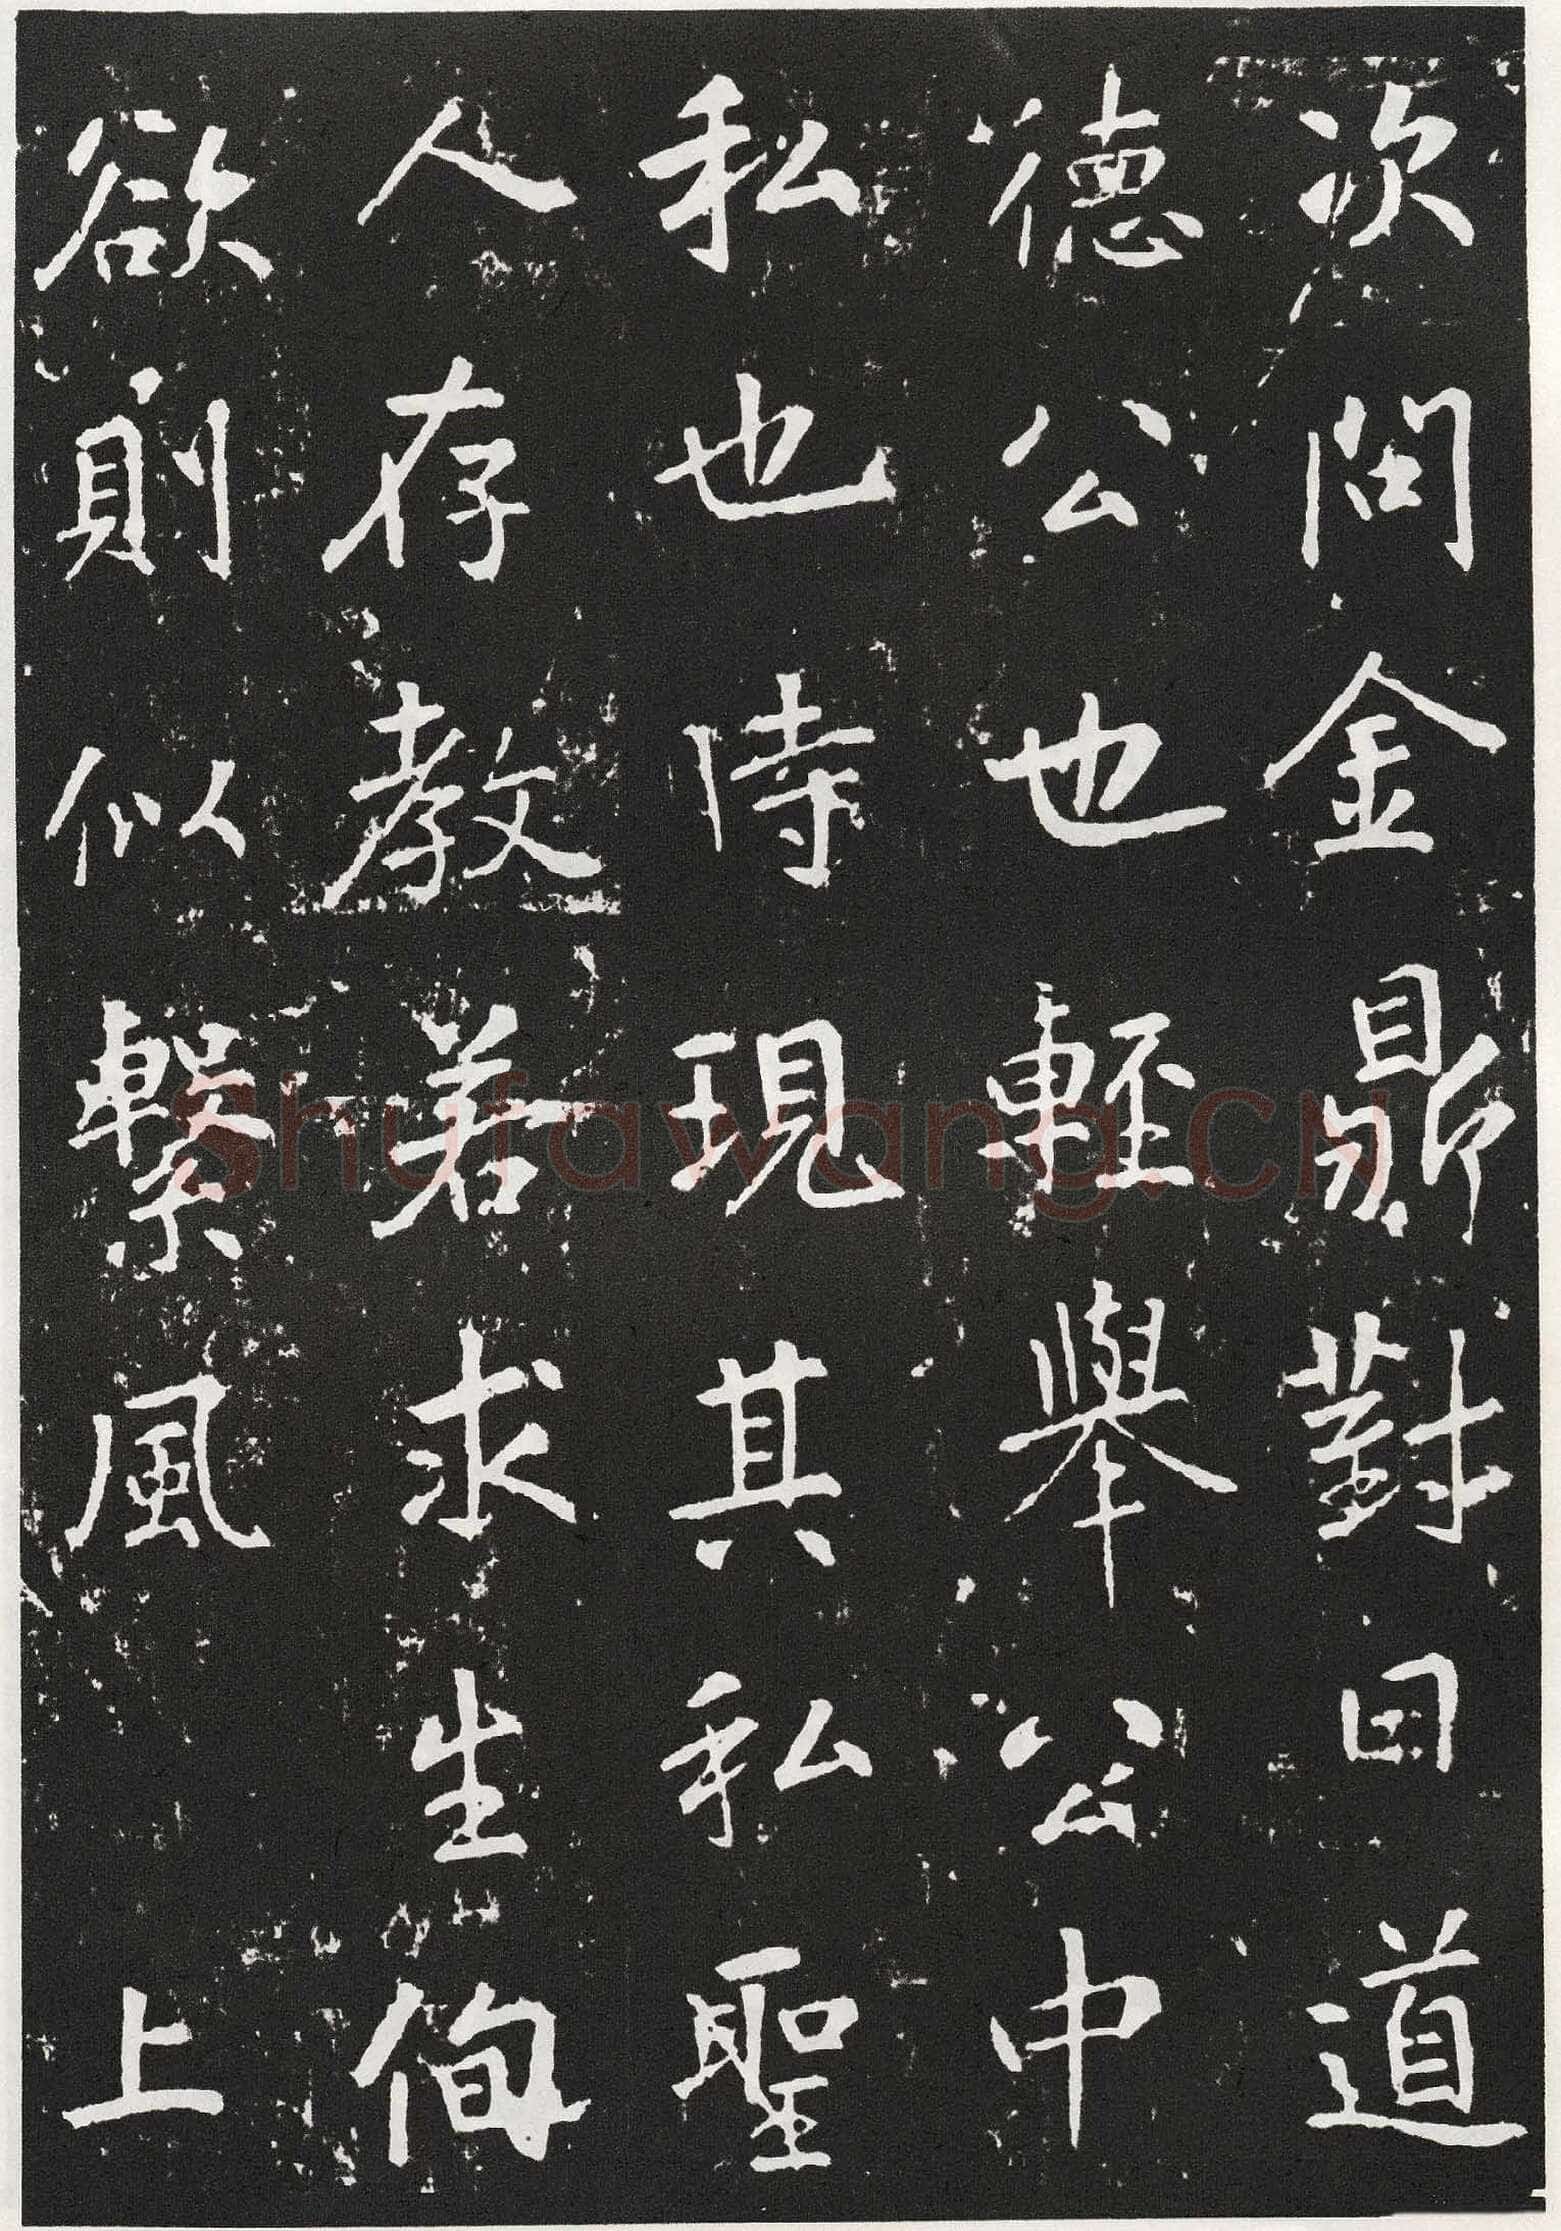 次問金鼎對曰道
德公也輕舉公中
私也時現其私聖
人存教若求生侚
欲則似繫風 上
Shufawang.CN